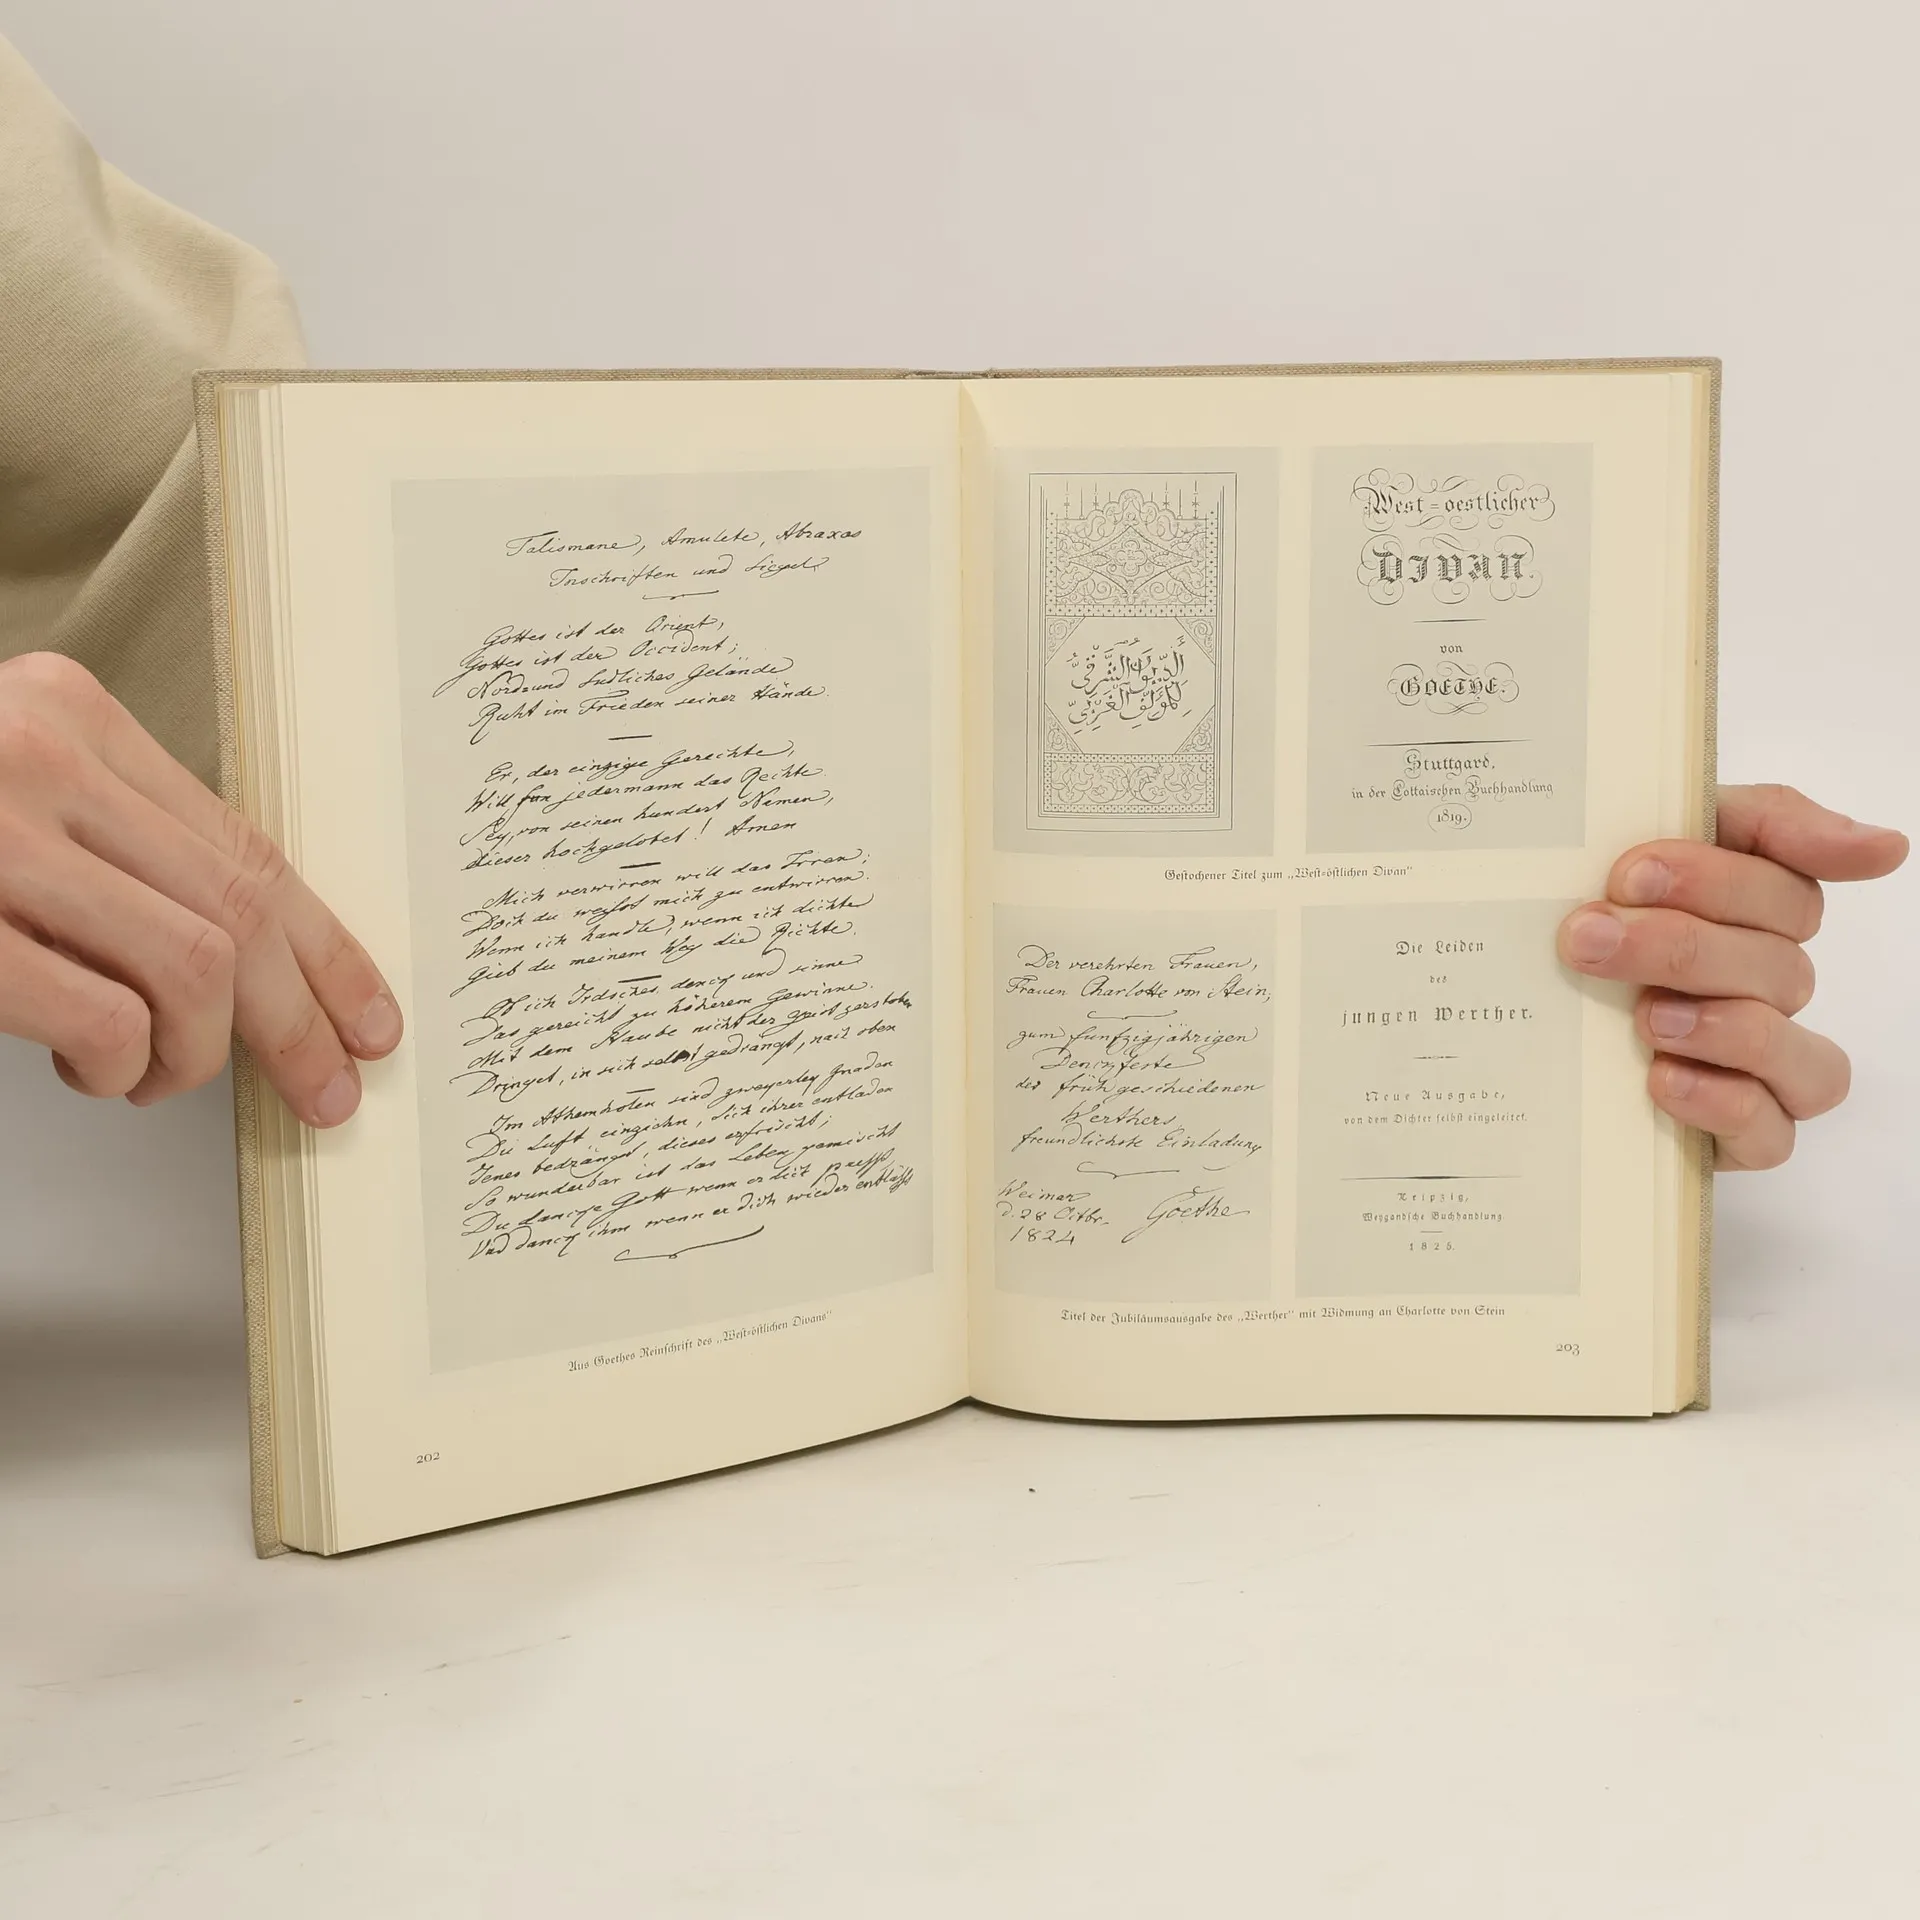 Talismane, Amulete, Abraxas
Inschriften und Siegel
Gottes ist der Orient,
Gottes ist der Occident;
Nord und südliches Gelände
Ruht im Frieden seiner Hände.
Er, der einzige Gerechte,
Will für jedermann das Rechte.
Sey, von seinen hundert Namen,
dieser hochgelobet! Amen
Mich verwirren will das Irren;
Doch du weißst mich zu entwirren.
Wenn ich handle, wenn ich dichte
Gieb du meinem Weg die Richte.
Ob ich Irdsches denck und sinne
Das gereicht zu höherem Gewinne.
Mit dem Staube nicht der Geist zerstoben
Dringet, in sich selbst gedrängt, nach oben
Im Athemholen sind zweyerley Gnaden
Die Luft einziehn, sich ihrer entladen
Jenes bedrängt, dieses erfrischt;
So wunderbar ist das Leben gemischt
Du dancke Gott wenn er dich presst,
Und danck ihm wenn er dich wieder entläßt
Aus Goethes Reinschrift des „West-östlichen Divans“
202
الديوان الشرقي
للمؤلف الغربي
West=oestlicher
DIVAN.
von
GOETHE.
Stuttgard,
in der Cottaischen Buchhandlung
1819.
Gestochener Titel zum „West-östlichen Divan“
Der verehrten Frauen,
Frauen Charlotte von Stein,
zum funfzigjährigen
Denckfeste
des früh geschiedenen
Werthers
freundlichste Einladung
Weimar
d. 28 Octbr.
1824
Goethe
Die Leiden
des
jungen Werther.
Neue Ausgabe,
von dem Dichter selbst eingeleitet.
Leipzig,
Weygandsche Buchhandlung
1825.
Titel der Jubiläumsausgabe des „Werther“ mit Widmung an Charlotte von Stein
203